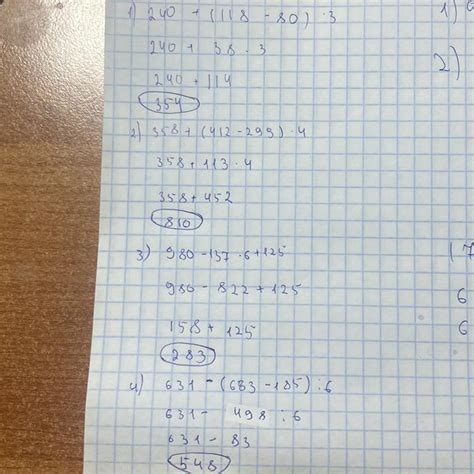 1) 240 + (118 - 80) · 3
240 + 38 · 3
240 + 114
354
2) 358 + (412 - 299) · 4
358 + 113 · 4
358 + 452
810
3) 980 - 137 · 6 + 125
980 - 822 + 125
158 + 125
283
4) 631 - (683 - 185) : 6
631 - 498 : 6
631 - 83
548
1)
2)
6
6